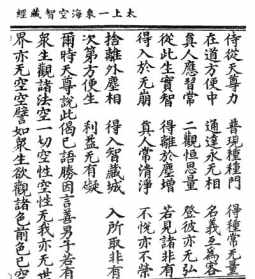 太上一乘海空智藏經
侍從天尊力　普現種種門　得種常无量
在道方便中　通達永无相　名義互為客
真人應習常　二觀恒思量　登彼亦无弘
從此生實智　得離於塵增　若見諸非有
得入於无崩　真人常清淨　不恱亦不榮
捨離外塵相　得入智藏城　入所取非有
次第方便生　利益无有礙
爾時天尊說此偈已語勝因言善男子若有
衆生觀諸法空一切空性空性无我亦无世
界亦无空空譬如衆生欲觀諸色前色已空